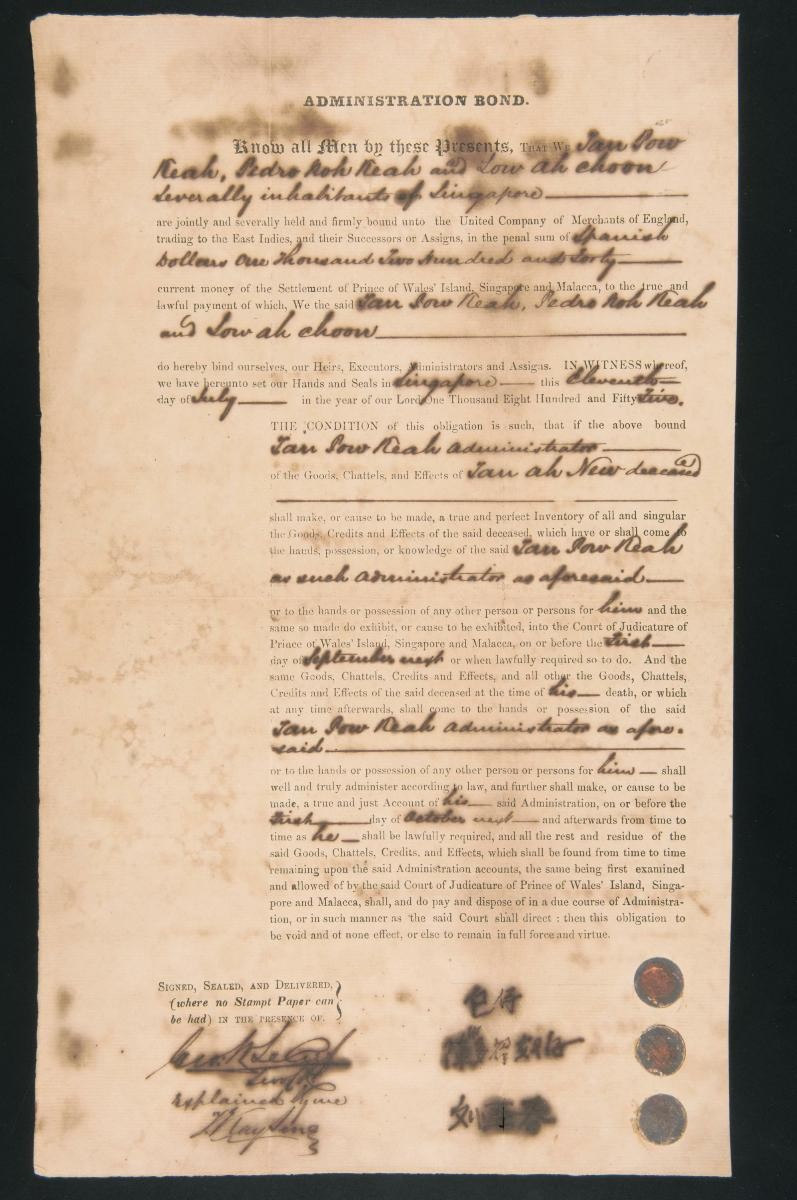 ADMINISTRATION BOND.
Know all Men by these Presents, THAT WE Tan Pow
Keah, Pedro Koh Keah and Low ah choon
Severally inhabitants of Singapore
are jointly and severally held and firmly bound unto the United Company of Merchants of England,
trading to the East Indies, and their Successors or Assigns, in the penal sum of Spanish
Dollars One Thousand Two Hundred and Forty
current money of the Settlement of Prince of Wales' Island, Singapore and Malacca, to the true and
lawful payment of which, We the said Tan Pow Keah, Pedro Koh Keah
and Low ah choon
do hereby bind ourselves, our Heirs, Executors, Administrators and Assigns. IN WITNESS whereof,
we have hereunto set our Hands and Seals in Singapore this Eleventh
day of July in the year of our Lord One Thousand Eight Hundred and Fifty Five.
THE CONDITION of this obligation is such, that if the above bound
Tan Pow Keah Administrator
of the Goods, Chattels, and Effects of Tan ah New deceased
shall make, or cause to be made, a true and perfect Inventory of all and singular
the Goods, Credits and Effects of the said deceased, which have or shall come to
the hands, possession, or knowledge of the said Tan Pow Keah
as such Administrator as aforesaid
or to the hands or possession of any other person or persons for him and the
same so made do exhibit, or cause to be exhibited, into the Court of Judicature of
Prince of Wales' Island, Singapore and Malacca, on or before the First
day of September next or when lawfully required so to do. And the
same Goods, Chattels, Credits and Effects, and all other the Goods, Chattels,
Credits and Effects of the said deceased at the time of his death, or which
at any time afterwards, shall come to the hands or possession of the said
Tan Pow Keah Administrator as afore-
said
or to the hands or possession of any other person or persons for him shall
well and truly administer according to law, and further shall make, or cause to be
made, a true and just Account of his said Administration, on or before the
First day of October next and afterwards from time to
time as he shall be lawfully required, and all the rest and residue of the
said Goods, Chattels, Credits, and Effects, which shall be found from time to time
remaining upon the said Administration accounts, the same being first examined
and allowed of by the said Court of Judicature of Prince of Wales' Island, Singa-
pore and Malacca, shall, and do pay and dispose of in a due course of Administra-
tion, or in such manner as the said Court shall direct : then this obligation to
be void and of none effect, or else to remain in full force and virtue.
SIGNED, SEALED, AND DELIVERED,
(where no Stampt Paper can
be had) IN THE PRESENCE OF.
Explained by me